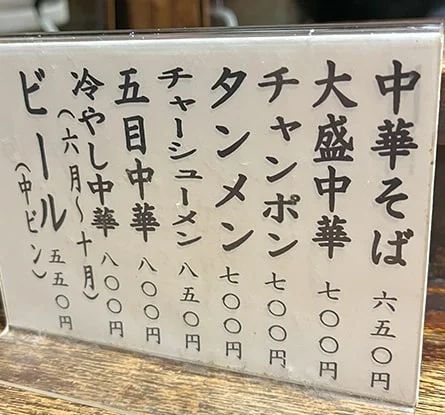 中華そば 六五〇円
大盛中華 七〇〇円
チャンポン 七〇〇円
タンメン 七〇〇円
チャーシューメン 八五〇円
五目中華 八〇〇円
冷やし中華 八〇〇円
(六月〜十月)
ビール 五五〇円
(中ビン)